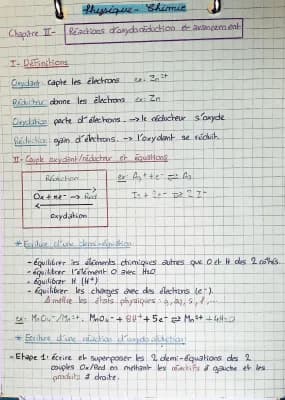 Physique - Chimie
Chapitre II - Réactions d'oxydoréduction et avancement
I - Définitions
Oxydant: capte les électrons ex: Zn²⁺
Réducteur: donne les électrons ex: Zn
Oxydation: perte d'électrons. → le réducteur s'oxyde
Réduction: gain d'électrons. → l'oxydant se réduit.
II - Couple oxydant/réducteur et équations
Réduction
Ox + ne⁻ → Red
oxydation
ex: Ag⁺ + e⁻ ⇌ Ag
I₂ + 2e⁻ ⇌ 2 I⁻
* Ecriture d'une demi-équation
- équilibrer les éléments chimiques autres que O et H des 2 côtés.
- équilibrer l'élément O avec H₂O
- équilibrer H (H⁺)
- équilibrer les charges avec des électrons (e⁻).
les états physiques: g, aq, s, l, ...
ex: MnO₄⁻/Mn²⁺. MnO₄⁻ + 8H⁺ + 5e⁻ ⇌ Mn²⁺ + 4H₂O
* Ecriture d'une réaction d'oxydoréduction
- Etape 1: écrire et superposer les 2 demi-équations des 2
couples Ox/Red en mettant les réactifs à gauche et les
produits à droite.